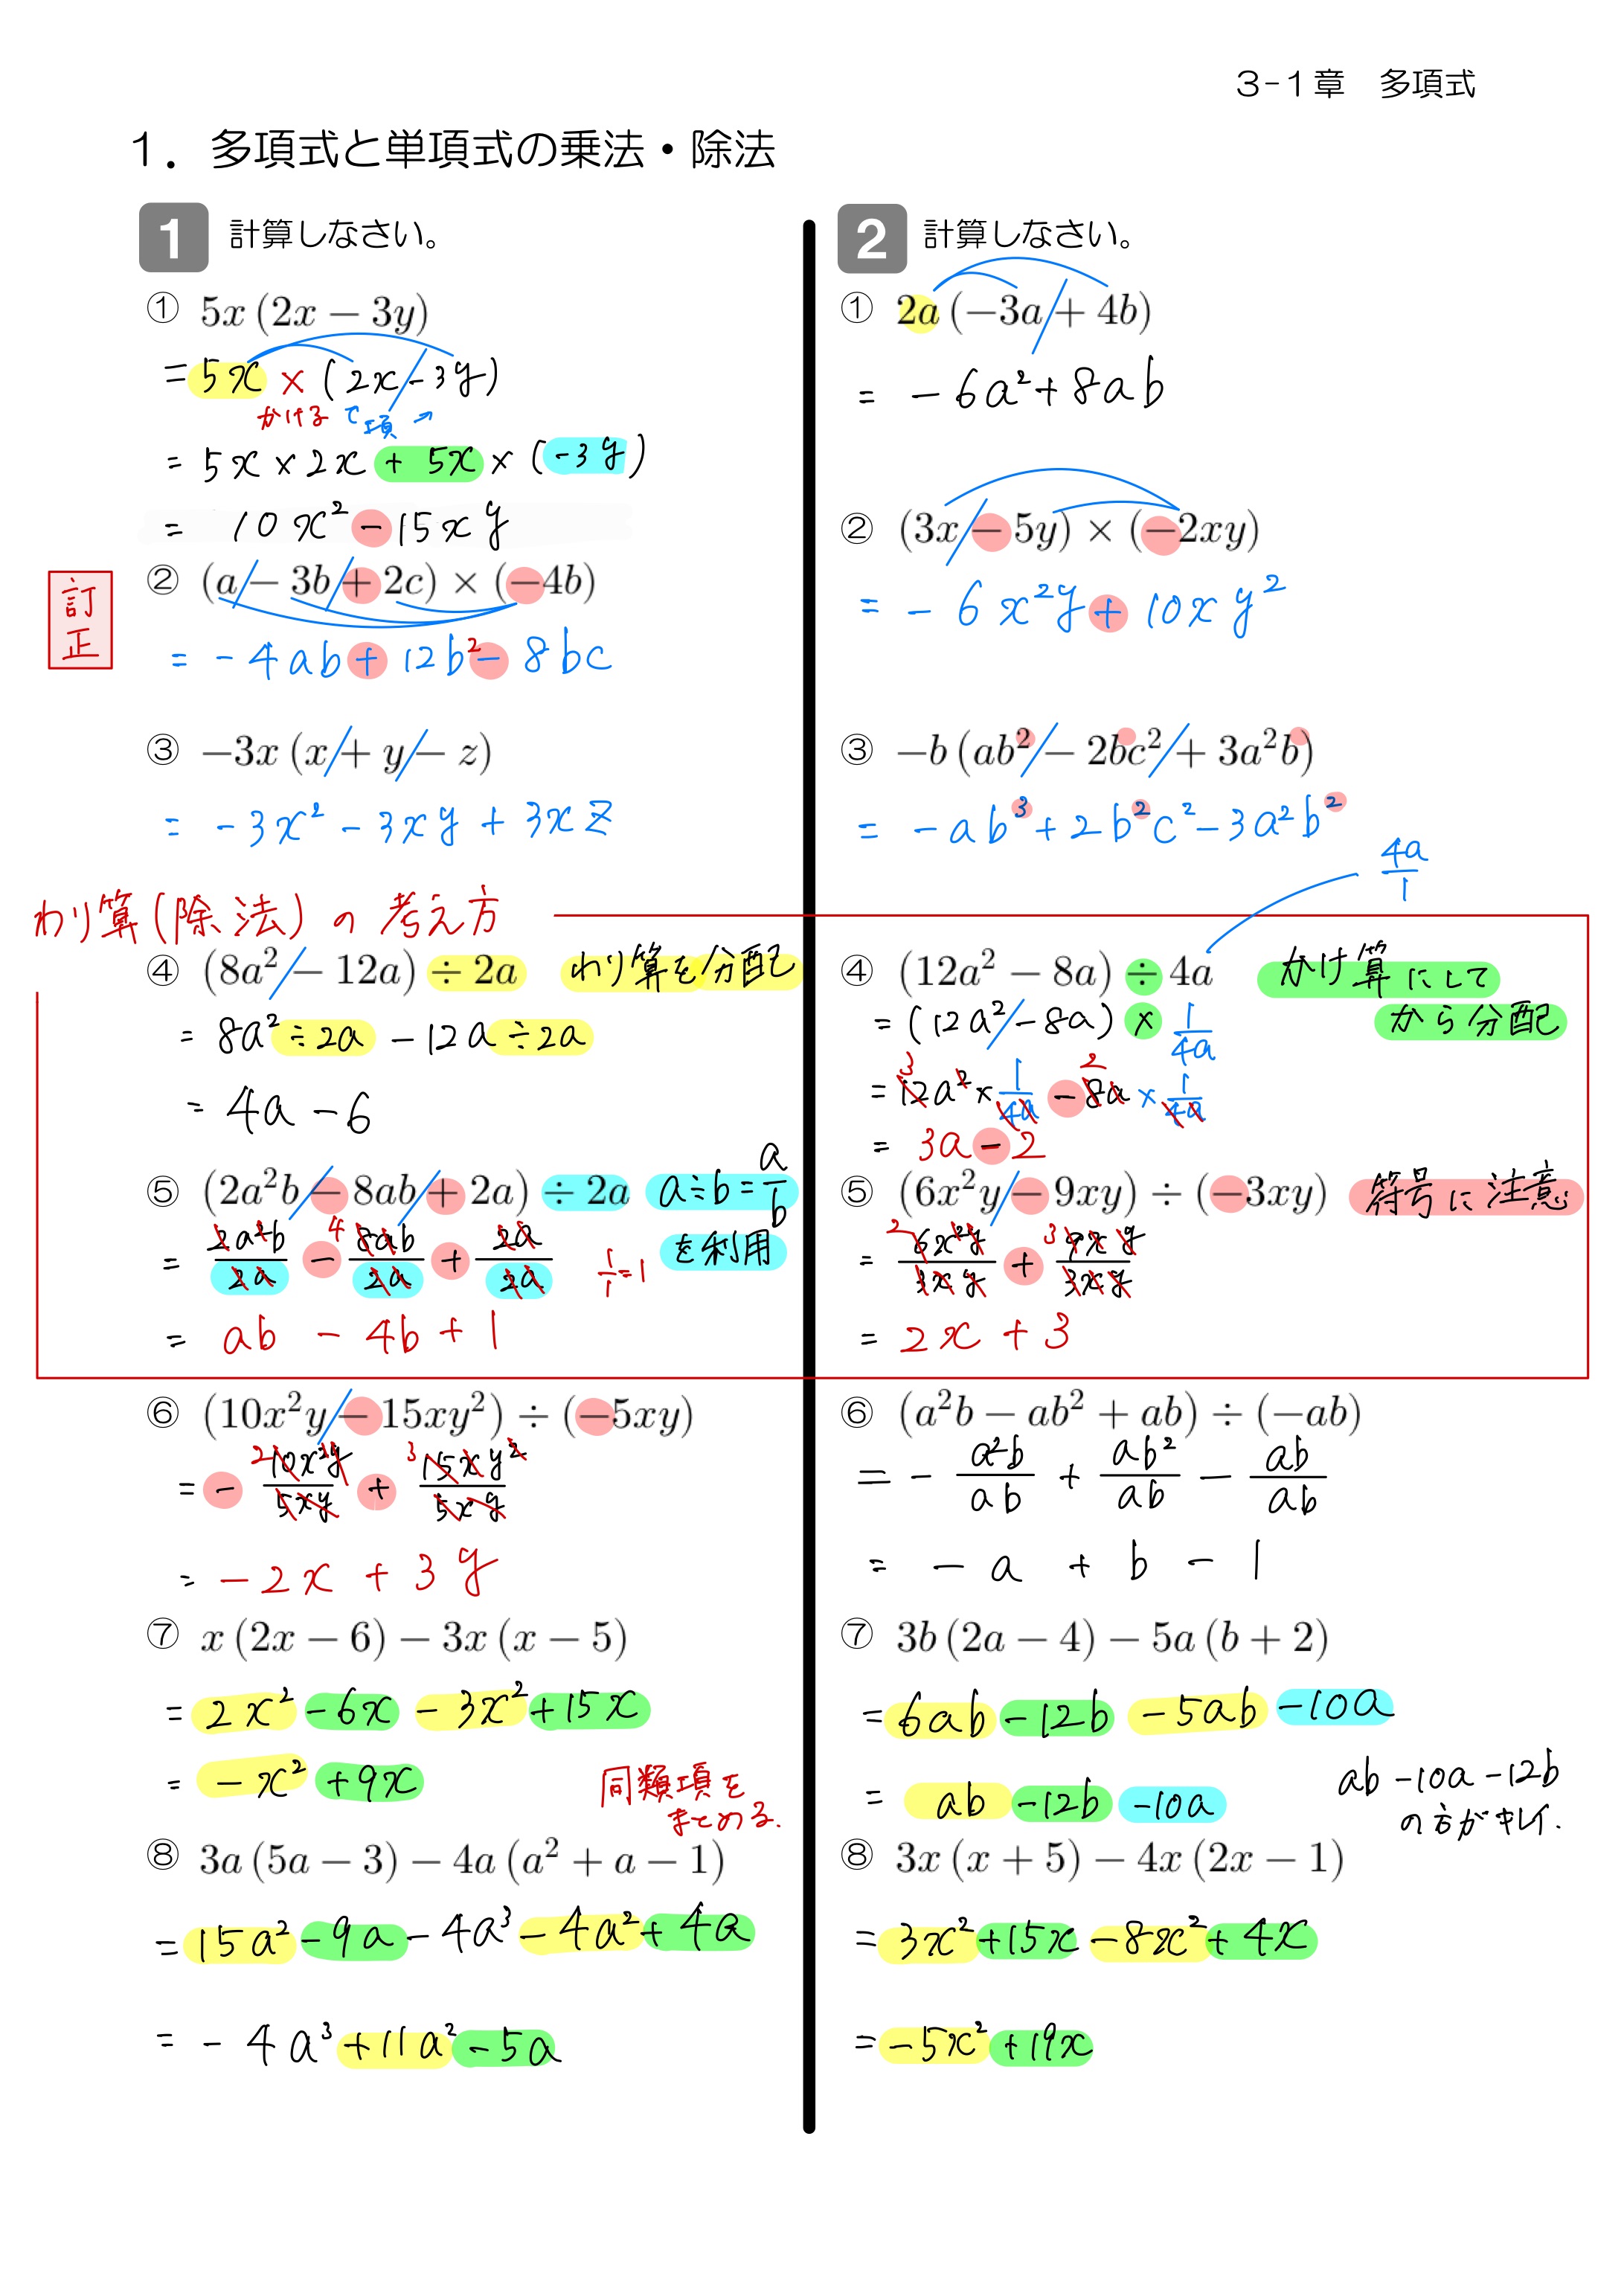 3-1章 多項式
1. 多項式と単項式の乗法・除法
1 計算しなさい。
① 5x(2x − 3y)
= 5x × (2x − 3y)
かける 項
= 5x × 2x + 5x × (−3y)
= 10x² − 15xy
訂正
② (a − 3b + 2c) × (−4b)
= −4ab + 12b² − 8bc
③ −3x(x + y − z)
= −3x² − 3xy + 3xz
わり算(除法)の考え方
④ (8a² − 12a) ÷ 2a わり算を分配
= 8a² ÷ 2a − 12a ÷ 2a
= 4a − 6
⑤ (2a²b − 8ab + 2a) ÷ 2a a÷b = a/b
を利用
= 2a²b/2a − 8ab/2a + 2a/2a 1/1 = 1
4
= ab − 4b + 1
⑥ (10x²y − 15xy²) ÷ (−5xy)
= − 10x²y/5xy + 15xy²/5xy
2 3
= −2x + 3y
⑦ x(2x − 6) − 3x(x − 5)
= 2x² − 6x − 3x² + 15x
= −x² + 9x
同類項を
まとめる.
⑧ 3a(5a − 3) − 4a(a² + a − 1)
= 15a² − 9a − 4a³ − 4a² + 4a
= −4a³ + 11a² − 5a
2 計算しなさい。
① 2a(−3a + 4b)
= −6a² + 8ab
② (3x − 5y) × (−2xy)
= −6x²y + 10xy²
③ −b(ab² − 2bc² + 3a²b)
= −ab³ + 2b²c² − 3a²b²
4a/1
④ (12a² − 8a) ÷ 4a かけ算にして
から分配
= (12a² − 8a) × 1/4a
3 2
= 12a² × 1/4a − 8a × 1/4a
= 3a − 2
⑤ (6x²y − 9xy) ÷ (−3xy) 符号に注意
2 3
= 6x²y/3xy + 9xy/3xy
= 2x + 3
⑥ (a²b − ab² + ab) ÷ (−ab)
= − a²b/ab + ab²/ab − ab/ab
= −a + b − 1
⑦ 3b(2a − 4) − 5a(b + 2)
= 6ab − 12b − 5ab − 10a
= ab − 12b − 10a
ab − 10a − 12b
の方がキレイ.
⑧ 3x(x + 5) − 4x(2x − 1)
= 3x² + 15x − 8x² + 4x
= −5x² + 19x